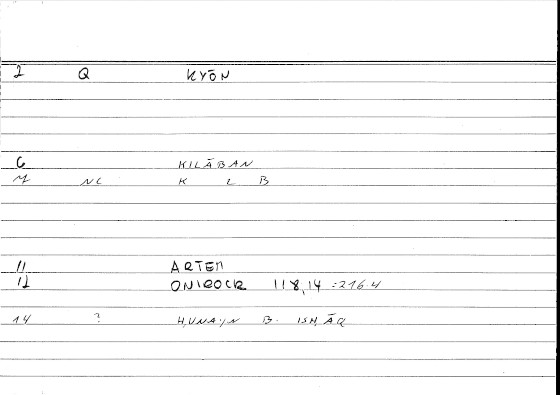 2 Q KYŌN
6 KILĀBAN
7 NC K L B
11 ARTEM
12 ONIROCR 118,14 :216.4
14 ? H,UNAYN B. ISH,ĀQ